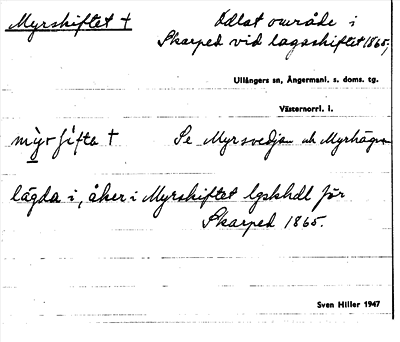 Myrshiftet † Odlat område i
Skarped vid lagaskiftet 1865,
Ullångers sn, Ångermanl. s. doms. tg.
Västernorrl. l.
Se Myrsvedjan och Myrhägna
lägda i, åker i Myrskiftet lgskhdl för
Skarped 1865.
Sven Hiller 1947